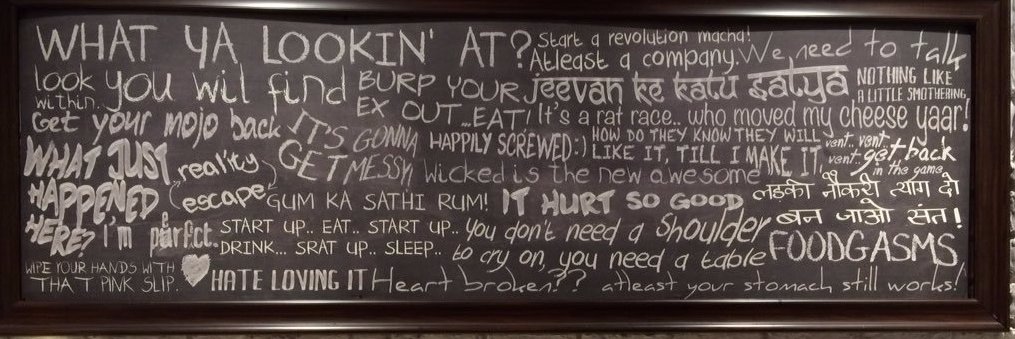 WHAT YA LOOKIN' AT?
Start a revolution macha!
Atleast a company.
We need to talk
look you wil find
within..
BURP YOUR
EX OUT..EAT!
jeevan ke katu satya
NOTHING LIKE
A LITTLE SMOTHERING
It's a rat race.. who moved my cheese yaar!
Get your mojo back
IT'S GONNA
GET MESSY
HAPPILY SCREWED:)
HOW DO THEY KNOW THEY WILL
LIKE IT, TILL I MAKE IT
vent.. vent..
vent.. get back
in the game
WHAT JUST
HAPPENED
HERE?
reality
escape
Wicked is the new awesome
लड़की नौकरी त्याग दो
बन जाओ संत!
GUM KA SATHI RUM!
IT HURT SO GOOD
I'm pårfct.
START UP.. EAT.. START UP..
DRINK... SRAT UP.. SLEEP..
You don't need a Shoulder
to cry on, you need a table
FOODGASMS
WIPE YOUR HANDS WITH
THAT PINK SLIP.
HATE LOVING IT
Heart broken?? atleast your stomach still works!